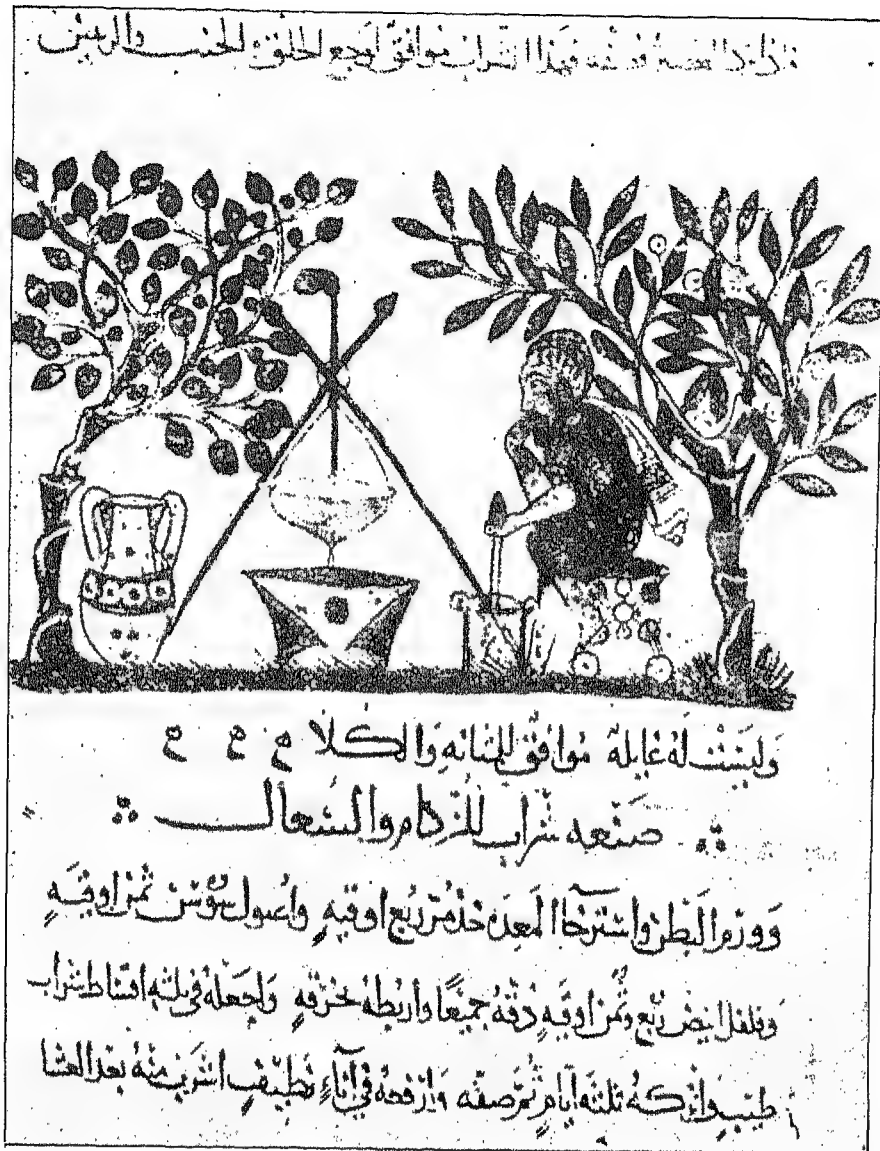 فهذا الشراب موافق لوجع الحلق والجنب والرئتين
وليست له غايلة موافق للمثانه والكلا
صنعه شراب للزكام والسعال
وورم البطن واسترخا المعده خذ مر ربع اوقيه واصول سوسن ثمن اوقيه
وفلفل ابيض ربع وثمن اوقيه دقه جميعا واربطه بخرقه واجعله في ثلثه اقساط شراب
طيب واتركه ثلثه ايام ثم صفه وارفعه في اناء نظيف اشربن منه بعد العشا